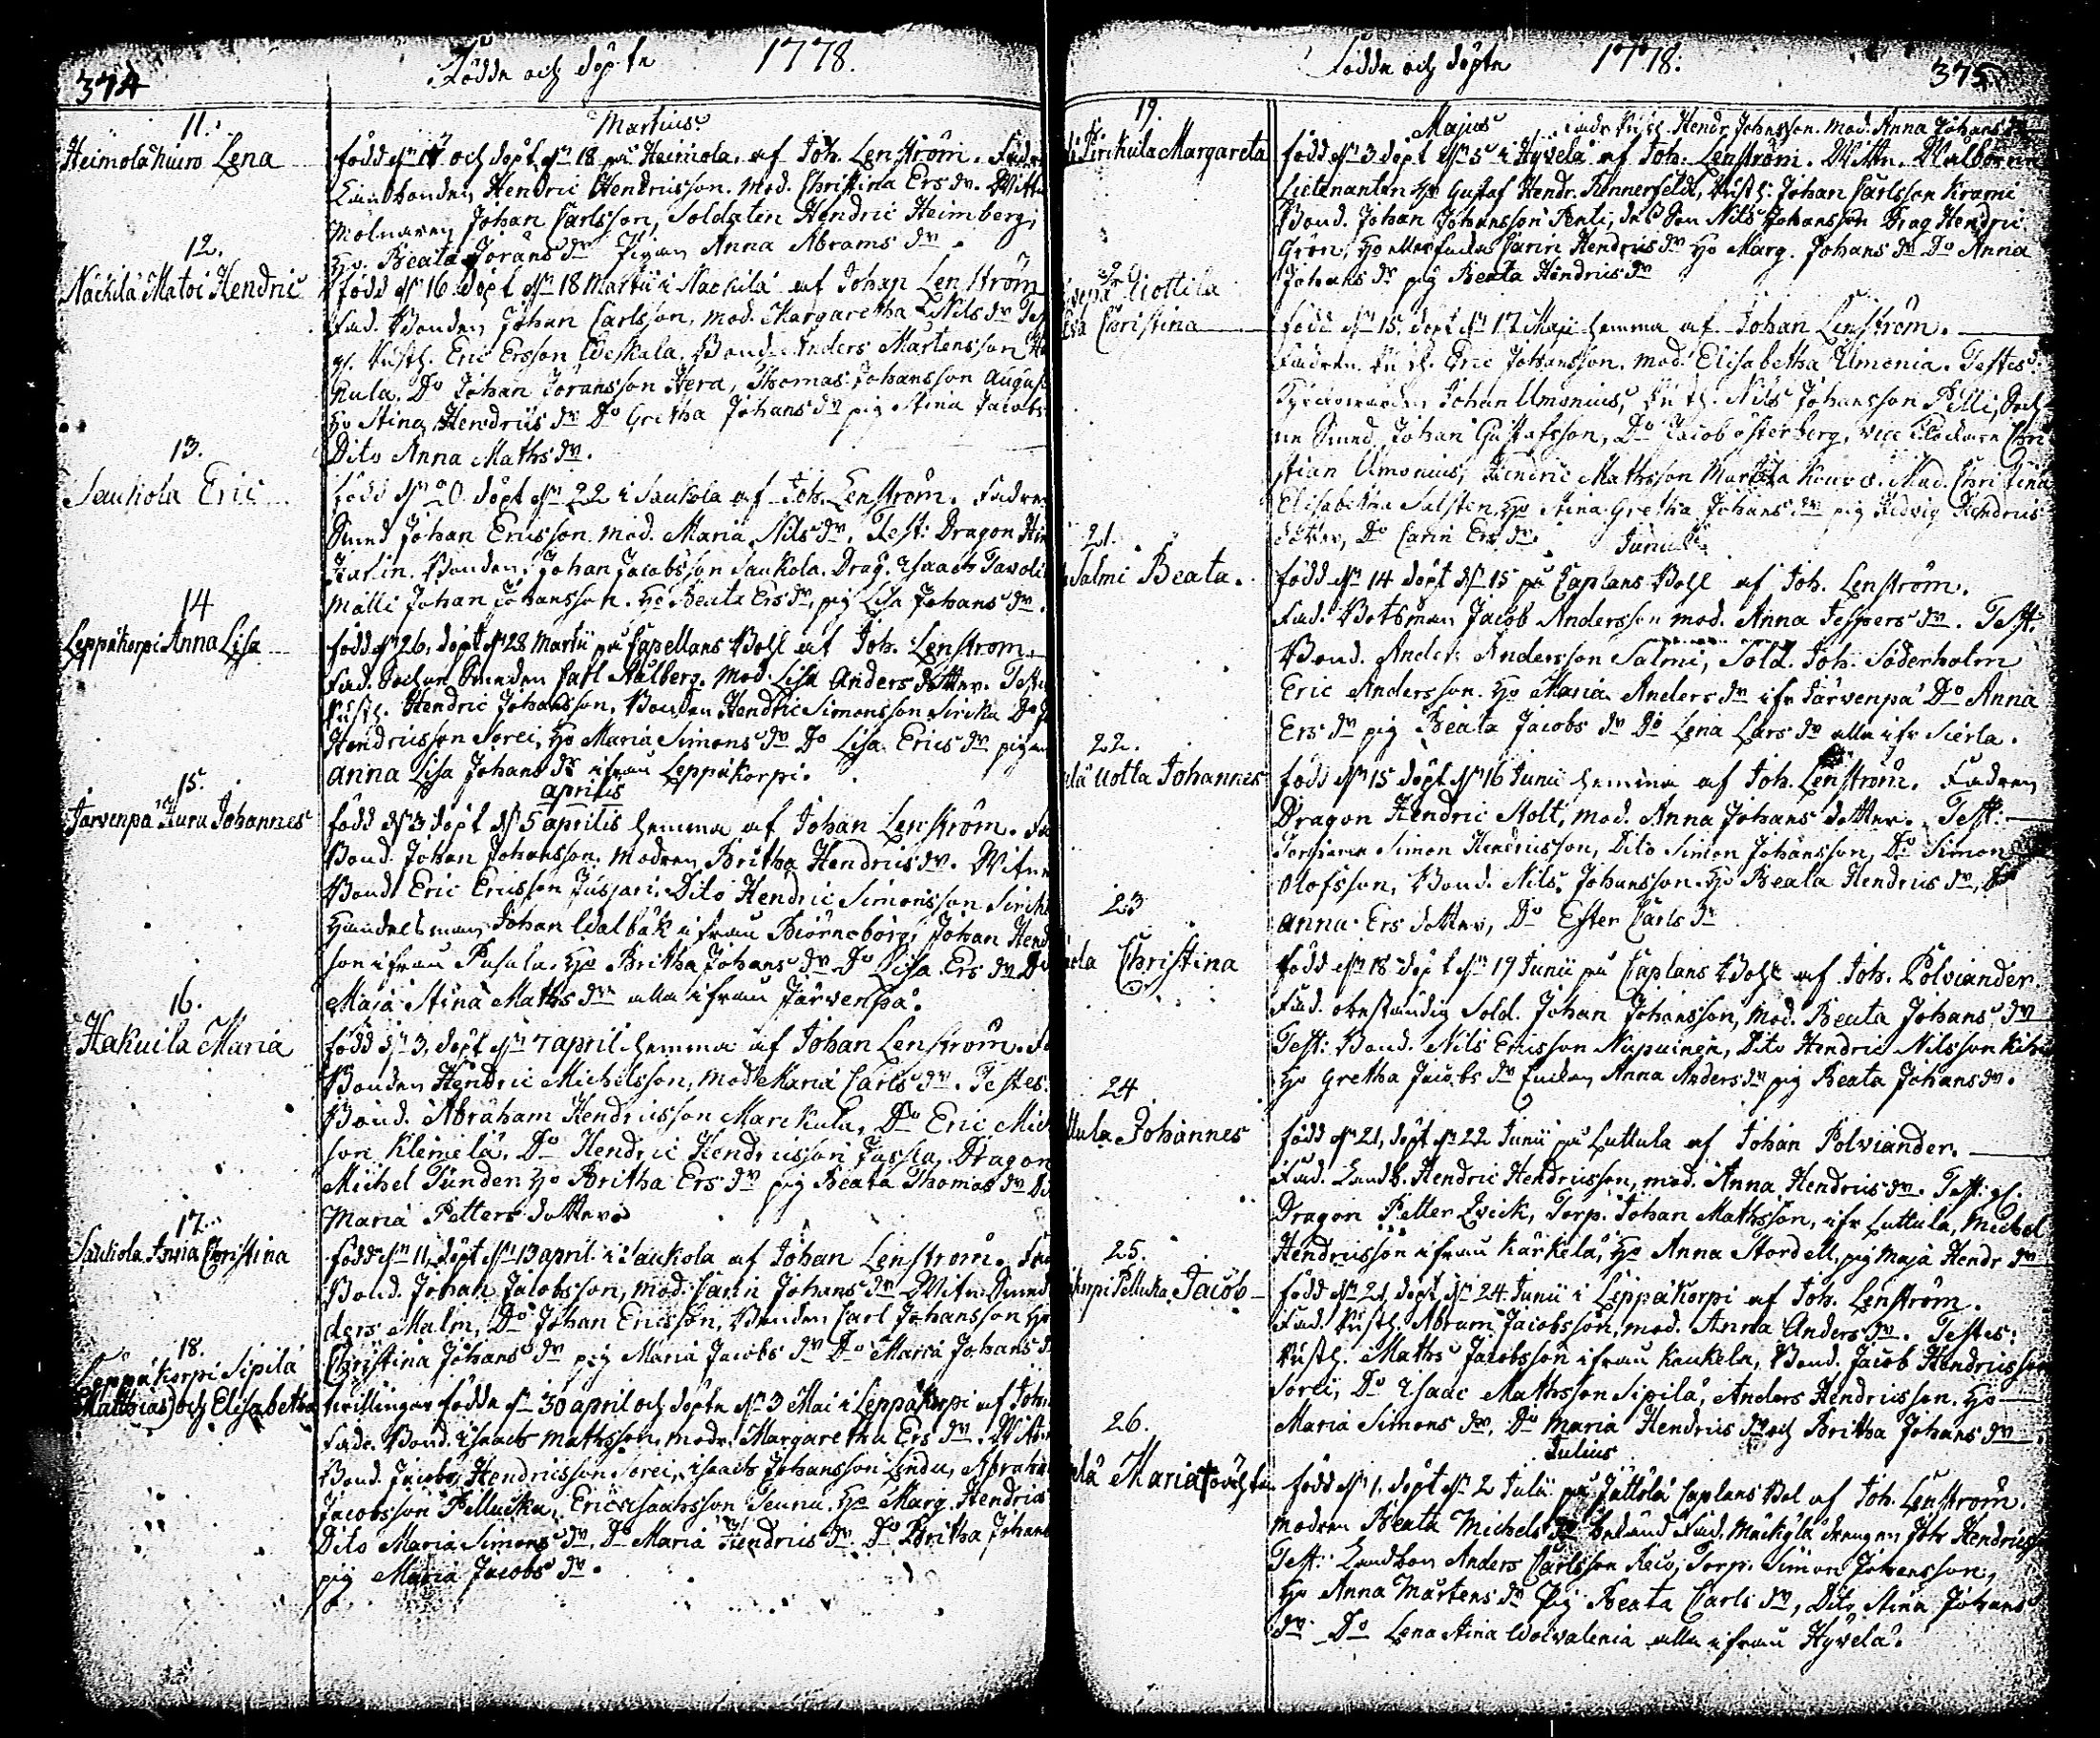 374
Födde och döpte 1778.
Martius
11.
Heimola huiro Lena
född d. 17 och döpt d. 18 på Heimola af Joh. Lenström. Fadren
Landbonden Hendric Hendricsson. mod. Christina Ersdr. Wittn
Molnaren Johan Carlsson, Soldaten Hendric Heimberg,
Ho. Beata Jörans dr Pigan Anna Abrams dr.
12.
Näckilä Matoi Hendric
född dn 16 döpt dn 18 Martii i Näckilä af Johan Lenström
Fad. Bonden Johan Carlsson, mod. Margaretha Nils dr Tes
Rusth. Eric Ersson Weskala. Bond. Anders Mårtensson
kula. Do Johan Joransson Hera, Thomas Johansson August
Ho Stina Hendrics dr Do Gretha Johans dr pig Stina Jacobs
Dito Anna Maths dr.
13.
Saukola Eric
född dn 20. döpt dn 22 i Saukola af Joh. Lenström. Fadren
Smed Johan Ericsson mod. Maria Nils dr. Test: Dragon
Bonden Johan Jacobsson Saukola. Drag. Isaach Tavoli
Mälli Johan Johansson. Ho Beata Ers dr, pig Lisa Johans dr.
14
Leppäkorpi Anna Lisa
född dn 26, döpt dn 28 Martii på Capellans Bohl af Joh. Lenström
Fad. Sochne Smeden Carl Ahlberg. Mod. Lisa Anders dotter. Testes
Rusth. Hendric Johansson, Bonden Hendric Simonsson Sirckа Do
Hendricsson Sorei, Ho Maria Simons dr Do Lisa Erics dr pigan
Anna Lisa Johans dr ifrån Leppäkorpi.
Aprilis
15.
Järvenpä Kuru Johannes
född dn 3 döpt dn 5 aprilis hemma af Johan Lenström.
Bond. Johan Johansson. modren Britha Hendrics dr. Witne
Bond. Eric Ericsson Jusjari. Dito Hendric Simonsson Sirck
Handelsman Johan Walbäk ifrån Biörneborg, Johan Hend
son ifrån Pasala. Ho Britha Johans dr Do Lisa Ers dr Do
Maja Stina Maths dr alla ifrån Järvenpä.
16.
Hakuila Maria
född dn 3, döpt dn 7 april hemma af Johan Lenström.
Bonden Hendric Michelsson, mod Maria Carls dr. Testes.
Bond. Abraham Hendricsson Marckula, Do Eric Mich
son Klemelä. Do Hendric Hendricsson Jassia, Dragon
Michel Tunder Ho Britha Ers dr pig Beata Thomas dr
Maria Petters dotter
17.
Saukola Anna Christina
född dn 11, döpt dn 13 april i Saukola af Johan Lenström.
Bond. Johan Jacobsson, mod. Carin Johans dr Witn Smed
ders Malm, Do Johan Ericsson, Bonden Carl Johansson Ho
Christina Johans dr pig Maria Jacobs dr Do Maria Johans dr
18.
Leppäkorpi Sipilä
Matthias och Elisabetha
tvillingar födde dn 30 april och döpte dn 3 Maii i Leppäkorpi af Joh
Fadr. Bond. Isaach Mathsson, modr. Margaretha Ers dr. Witn
Bond. Jacob Hendricsson Sorei, Isaach Johansson Lindu, Abraha
Jacobsson Pelluska, Eric Isaachsson Seunu. Ho Marg. Hendrics
Dito Maria Simons dr, Do Maria Hendrics dr. Do Britha Johans
pig Maria Jacobs dr.
Födde och döpte 1778. 375
Majus Fadr Rusth. Hendr Johnsson. mod. Anna Johans dr
19.
Pirckula Margareta
född dn 3 döpt dn 5 i Hyvelä af Joh. Lenström. Wittn. Wälborne
Lieutenanten Hr Gustaf Hendr. Rönnerfeldt, Rusth: Johan Carlsson Krami
Bond. Johan Johansson Penti, dess Son Nils Johansson Drag Hendric
Grön, Carin Hendrics dr Ho Marg. Johans dr Do Anna
Johans dr pig Beata Hendrics dr
20
Uottila
Christina
född dn 15. döpt dn 17 Maji hemma af Johan Lenström.
Fadren Rusth. Eric Johansson. mod Elisabetha Umonia. Testes:
Johan Umonius, Rusth. Nils Johansson Pelli, Soch
ne Smed Johan Gustafsson, Do Jacob Österberg, vice Klockaren Chri
stian Umonius, Hendric Mathsson Murtta Kouvo. Mad. Christina
Elisabetha Salsten, Ho Stina Gretha Johans dr pig Hedvig Hendrics
dotter, Do Carin Ers dr.
Junius
21.
Salmi Beata.
född dn 14 döpt dn 15 på Caplans Bohl af Joh. Lenström.
Fad. Botsman Jacob Andersson mod. Anna Jespers dr. Test.
Bond. Anders Andersson Salmi, Sold. Joh. Söderholm
Eric Andersson. Ho Maria Anders dr ifr Järvenpä Do Anna
Ers dr pig Beata Jacobs dr Do Lena Lars dr alla ifr Sierla.
22.
Uotta Johannes
född dn 15 döpt dn 16 Junii hemma af Joh. Lenström. Fadren
Dragon Hendric Stolt, mod. Anna Johans dotter. Test:
Torparen Simon Hendricsson, Dito Simon Johansson, Do Simon
Olofsson, Bond. Nils Johansson. Ho Beata Hendrics dr, Do
Anna Ers dotter, Do Ester Carls dr
23
Christina
född dn 18 döpt dn 19 Junii på Caplans Bohl af Joh. Polviander.
Fad. obeständig Sold. Johan Johansson, Mod. Beata Johans dr
Test: Bond. Nils Ericsson Nupuinen, Dito Hendric Nilsson
Ho Gretha Jacobs dr Enckan Anna Anders dr pig Beata Johans dr.
24
Johannes
född dn 21, döpt dn 22 Junii på Luttula af Johan Polviander.
Fad. Landb. Hendric Hendricsson, mod. Anna Hendrics dr. Test: gl.
Dragon Petter Qvick, Torp. Johan Mathsson, ifr Luttula, Michel
Hendricsson ifrån Kärkelä, Ho Anna Stordell, pig Maja Hendr dr
25.
korpi Pelluska Jacob
född dn 21, döpt dn 24 Junii i Leppäkorpi af Joh. Lenström.
Fad. Rusth. Abram Jacobsson, mod. Anna Anders dr. Testes:
Rusth. Maths Jacobsson ifrån Kaukela, Bond. Jacob Hendricsson
Sorei, Do Isaac Mathsson Sipilä, Anders Hendricsson. Ho
Maria Simons dr, Do Maria Hendrics dr och Britha Johans dr.
Julius
26.
Maria oächta
född dn 1. döpt dn 2 Julii på Jättölä Caplans Bol af Joh. Lenström.
modren Beata Michels dr bekänd Fad. Mäckylä drengen Joh Hendricss
Test: Landbon Anders Carlsson Reco, Torp. Simon Johansson,
Ho Anna Mårtens dr Pig Beata Carls dr, Dito Stina Johans
dr Do Lena Stina Woivalenia alla ifrån Hyvelä.